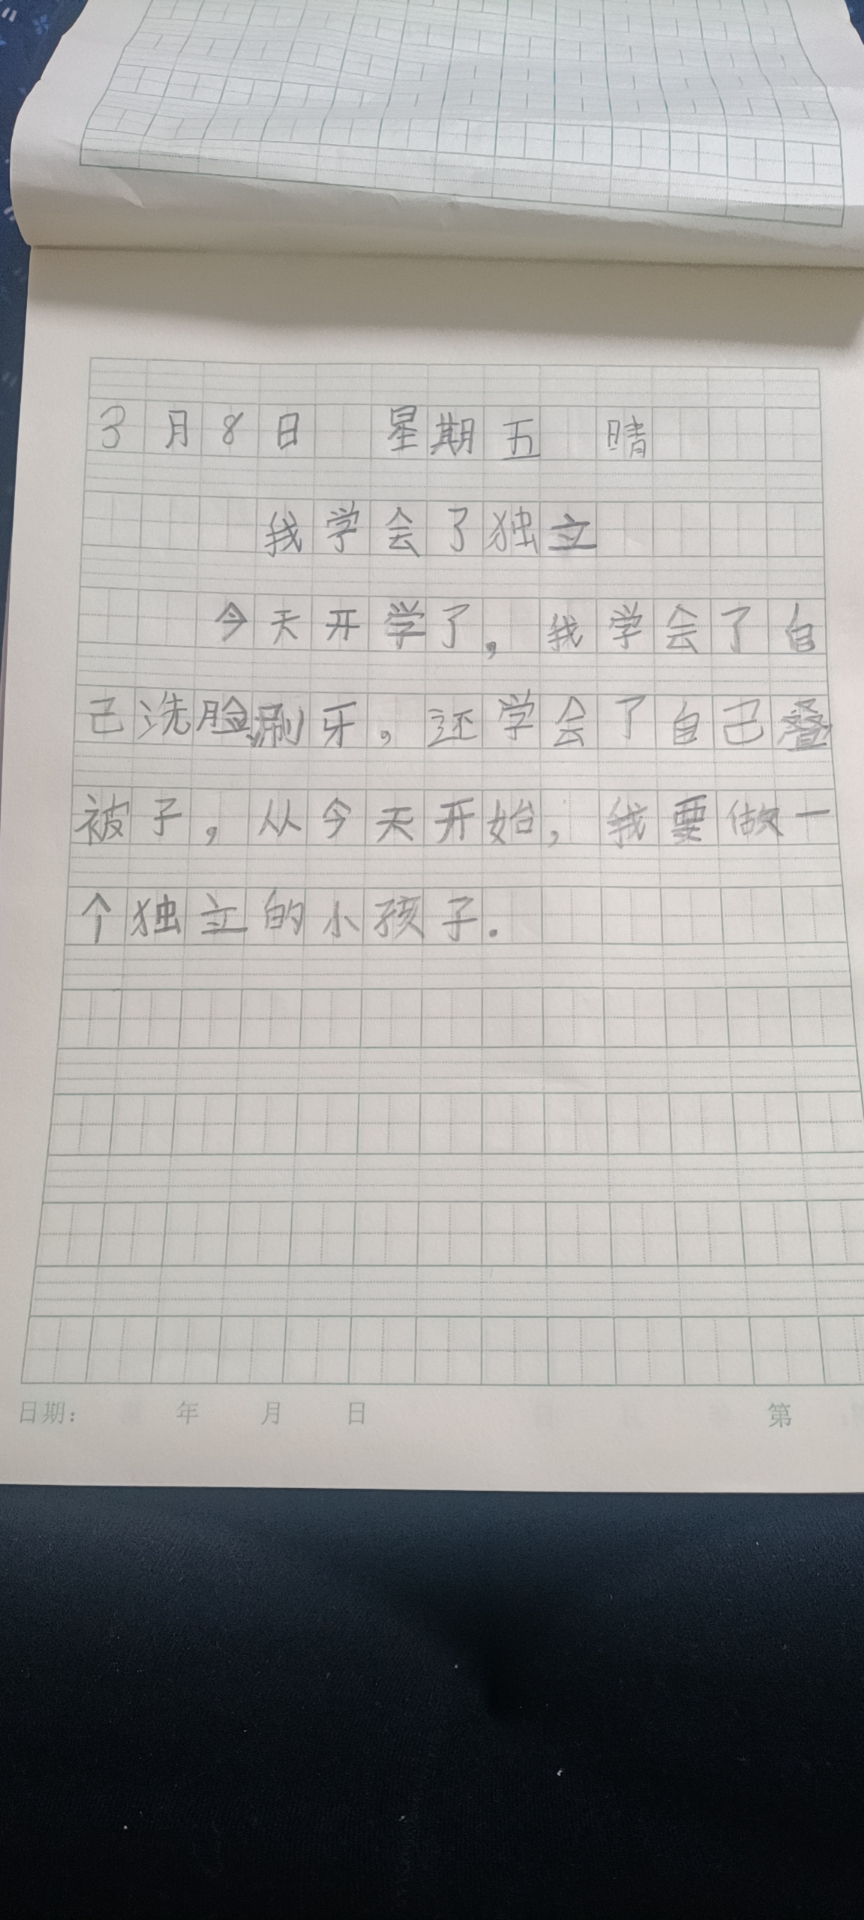 3月8日 星期五 晴
我学会了独立
今天开学了，我学会了自
己洗脸刷牙，还学会了自己叠
被子，从今天开始，我要做一
个独立的小孩子.
日期： 年 月 日 第